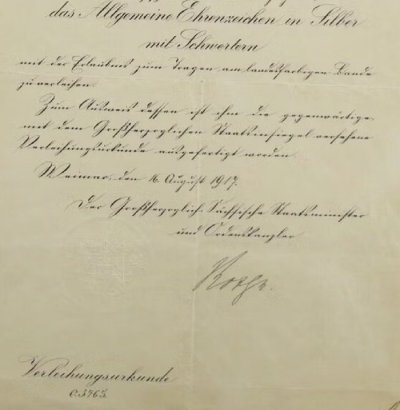 das Allgemeine Ehrenzeichen in Silber
mit Schwertern
mit der Erlaubnis zum Tragen am landesfarbigen Bande
zu verleihen.
Zum Ausweis dessen ist ihm die gegenwärtige
mit dem Großherzoglichen Staatsinsiegel versehene
Verleihungsurkunde ausgefertigt worden.
Weimar, den 16. August 1917.
Der Großherzoglich Sächsische Staatsminister
und Ordenskanzler
Rothe.
Verleihungsurkunde
C.5765.